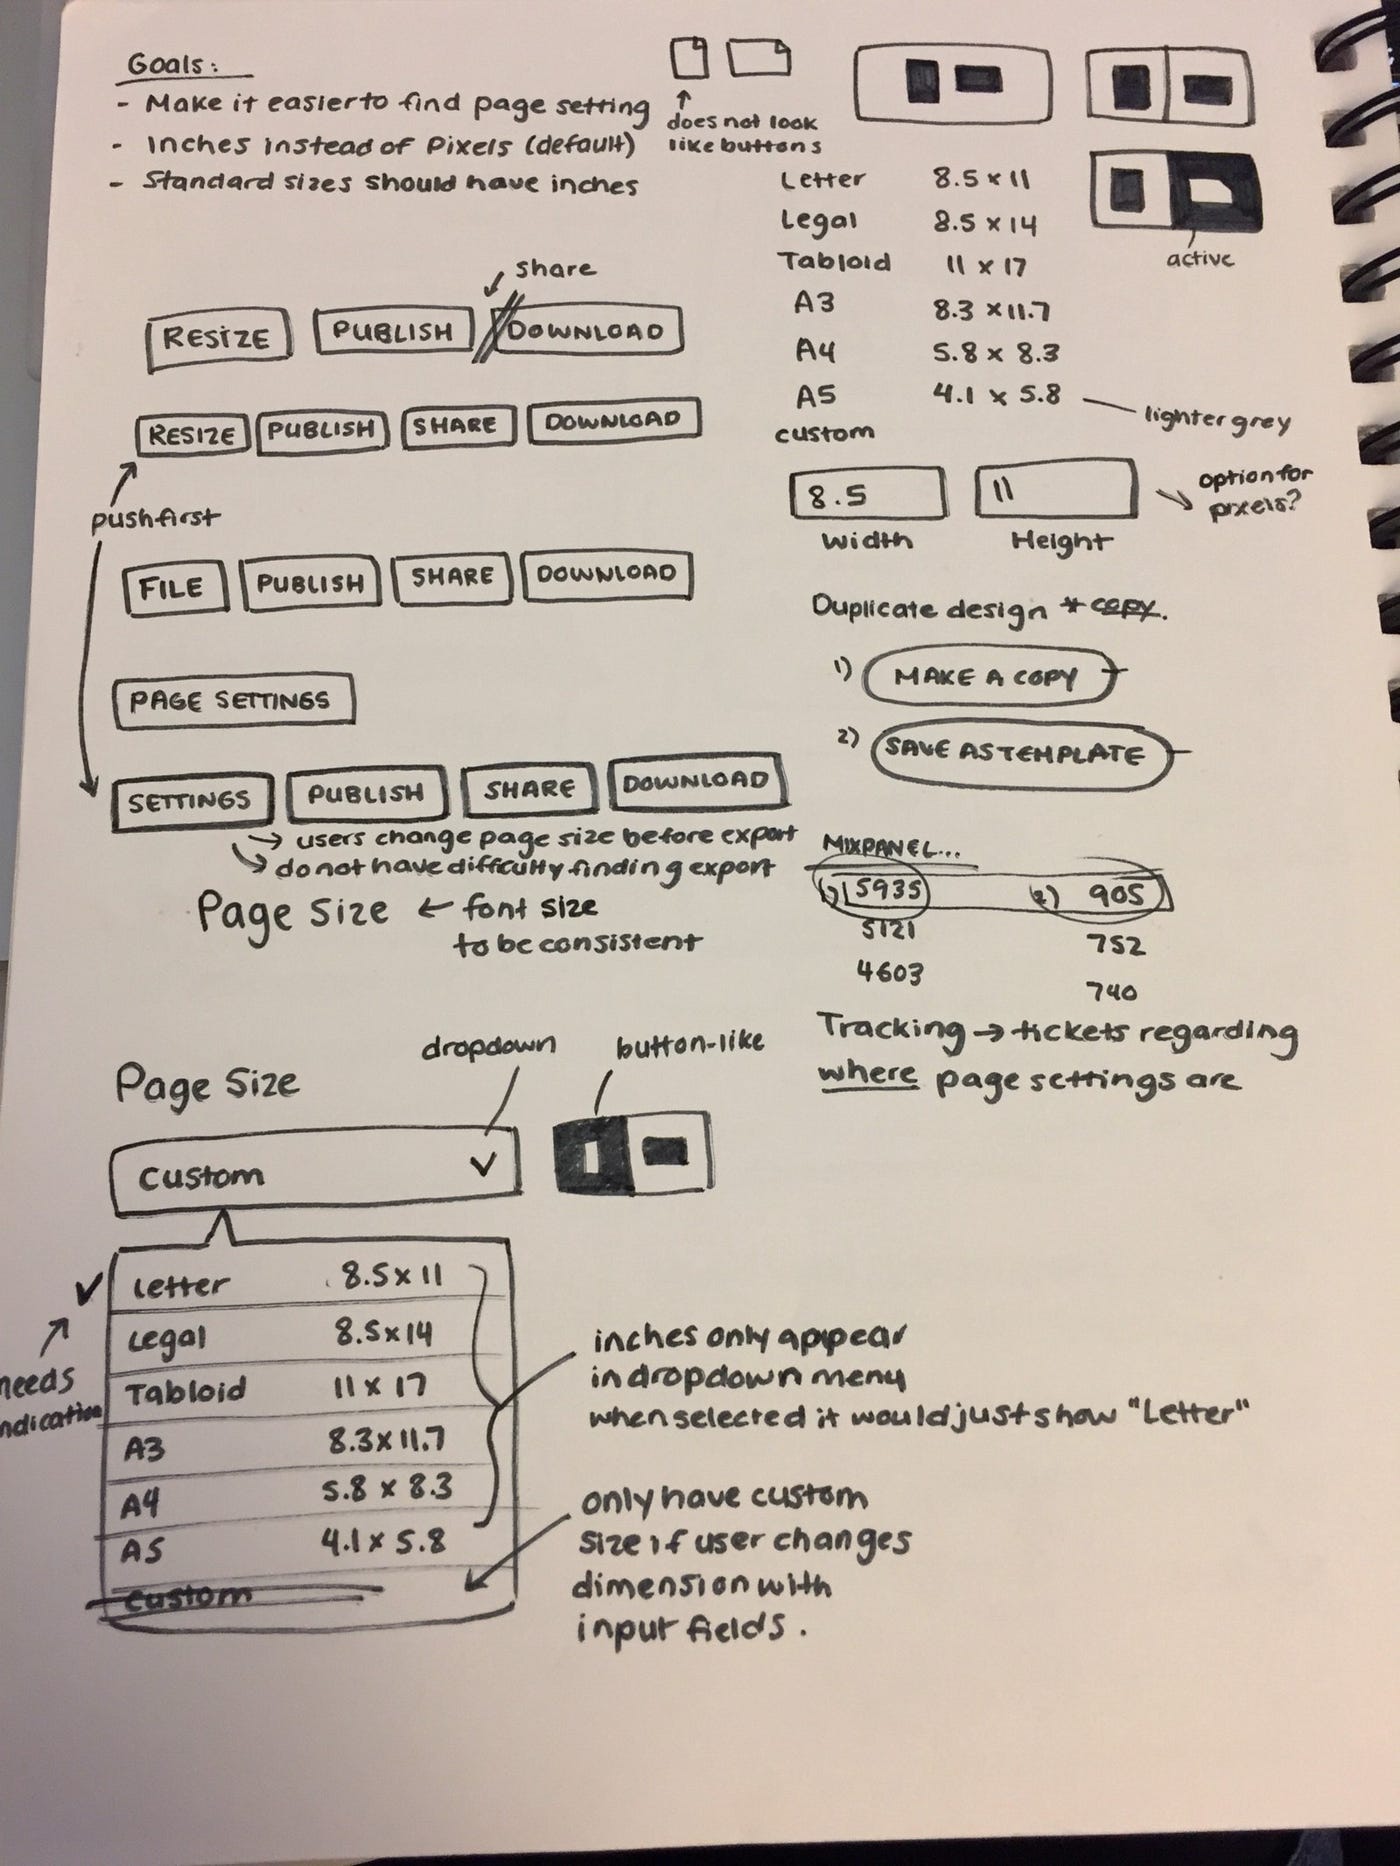 Goals:
- Make it easier to find page setting
- Inches instead of Pixels (default)
- Standard sizes should have inches
does not look
like buttons
active
Letter 8.5 x 11
Legal 8.5 x 14
Tabloid 11 x 17
A3 8.3 x 11.7
A4 5.8 x 8.3
A5 4.1 x 5.8
lighter grey
custom
8.5 11
Width Height
option for
pixels?
share
RESIZE PUBLISH DOWNLOAD
RESIZE PUBLISH SHARE DOWNLOAD
push first
FILE PUBLISH SHARE DOWNLOAD
PAGE SETTINGS
SETTINGS PUBLISH SHARE DOWNLOAD
→ users change page size before export
↳ do not have difficulty finding export
Page Size ← font size
to be consistent
Duplicate design * copy.
1) MAKE A COPY
2) SAVE AS TEMPLATE
MIXPANEL...
1) 5935 2) 905
5121 752
4603 740
Tracking → tickets regarding
where page settings are
dropdown button-like
Page Size
Custom
Letter 8.5 x 11
Legal 8.5 x 14
Tabloid 11 x 17
A3 8.3 x 11.7
A4 5.8 x 8.3
A5 4.1 x 5.8
custom
needs
ndication
inches only appear
in dropdown menu
when selected it would just show "Letter"
only have custom
size if user changes
dimension with
input fields.